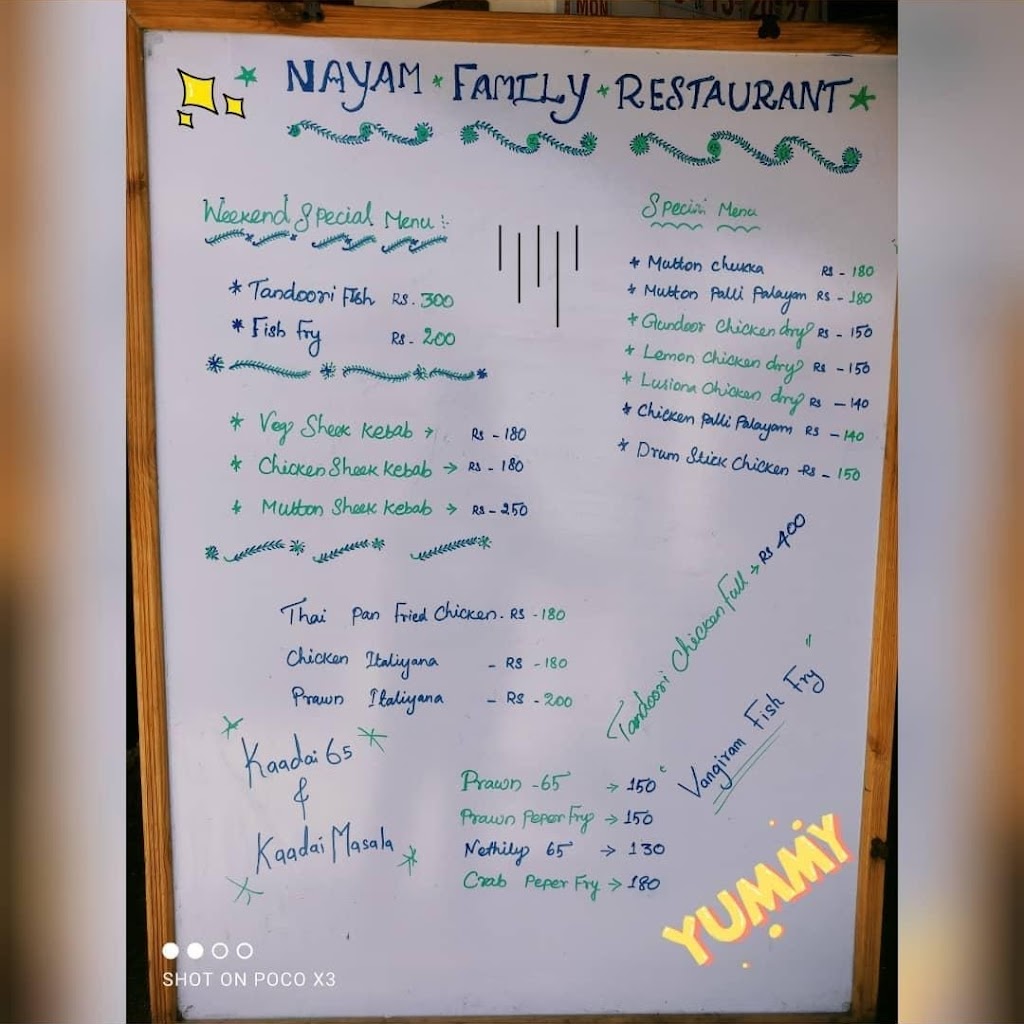 MON
NAYAM * FAMILY * RESTAURANT
Weekend Special Menu :-
* Tandoori Fish RS. 300
* Fish Fry RS - 200
* Veg Sheek Kebab → RS - 180
* Chicken Sheek Kebab → RS - 180
* Mutton Sheek Kebab → RS - 250
Thai Pan Fried Chicken. RS - 180
Chicken Italiyana - RS - 180
Prawn Italiyana - RS - 200
Kaadai 65
&
Kaadai Masala
Special Menu
* Mutton chukka RS - 180
* Mutton Palli Palayam RS - 180
* Gundoor Chicken dry RS - 150
* Lemon Chicken dry RS - 150
* Lusiona Chicken dry RS - 140
* Chicken Palli Palayam RS - 140
* Drum Stick Chicken - RS - 150
Tandoori Chicken Full → RS 400
Vangiram Fish Fry "
Prawn - 65 → 150
Prawn Peper Fry → 150
Nethily 65 → 130
Crab Peper Fry → 180
YUMMY
SHOT ON POCO X3